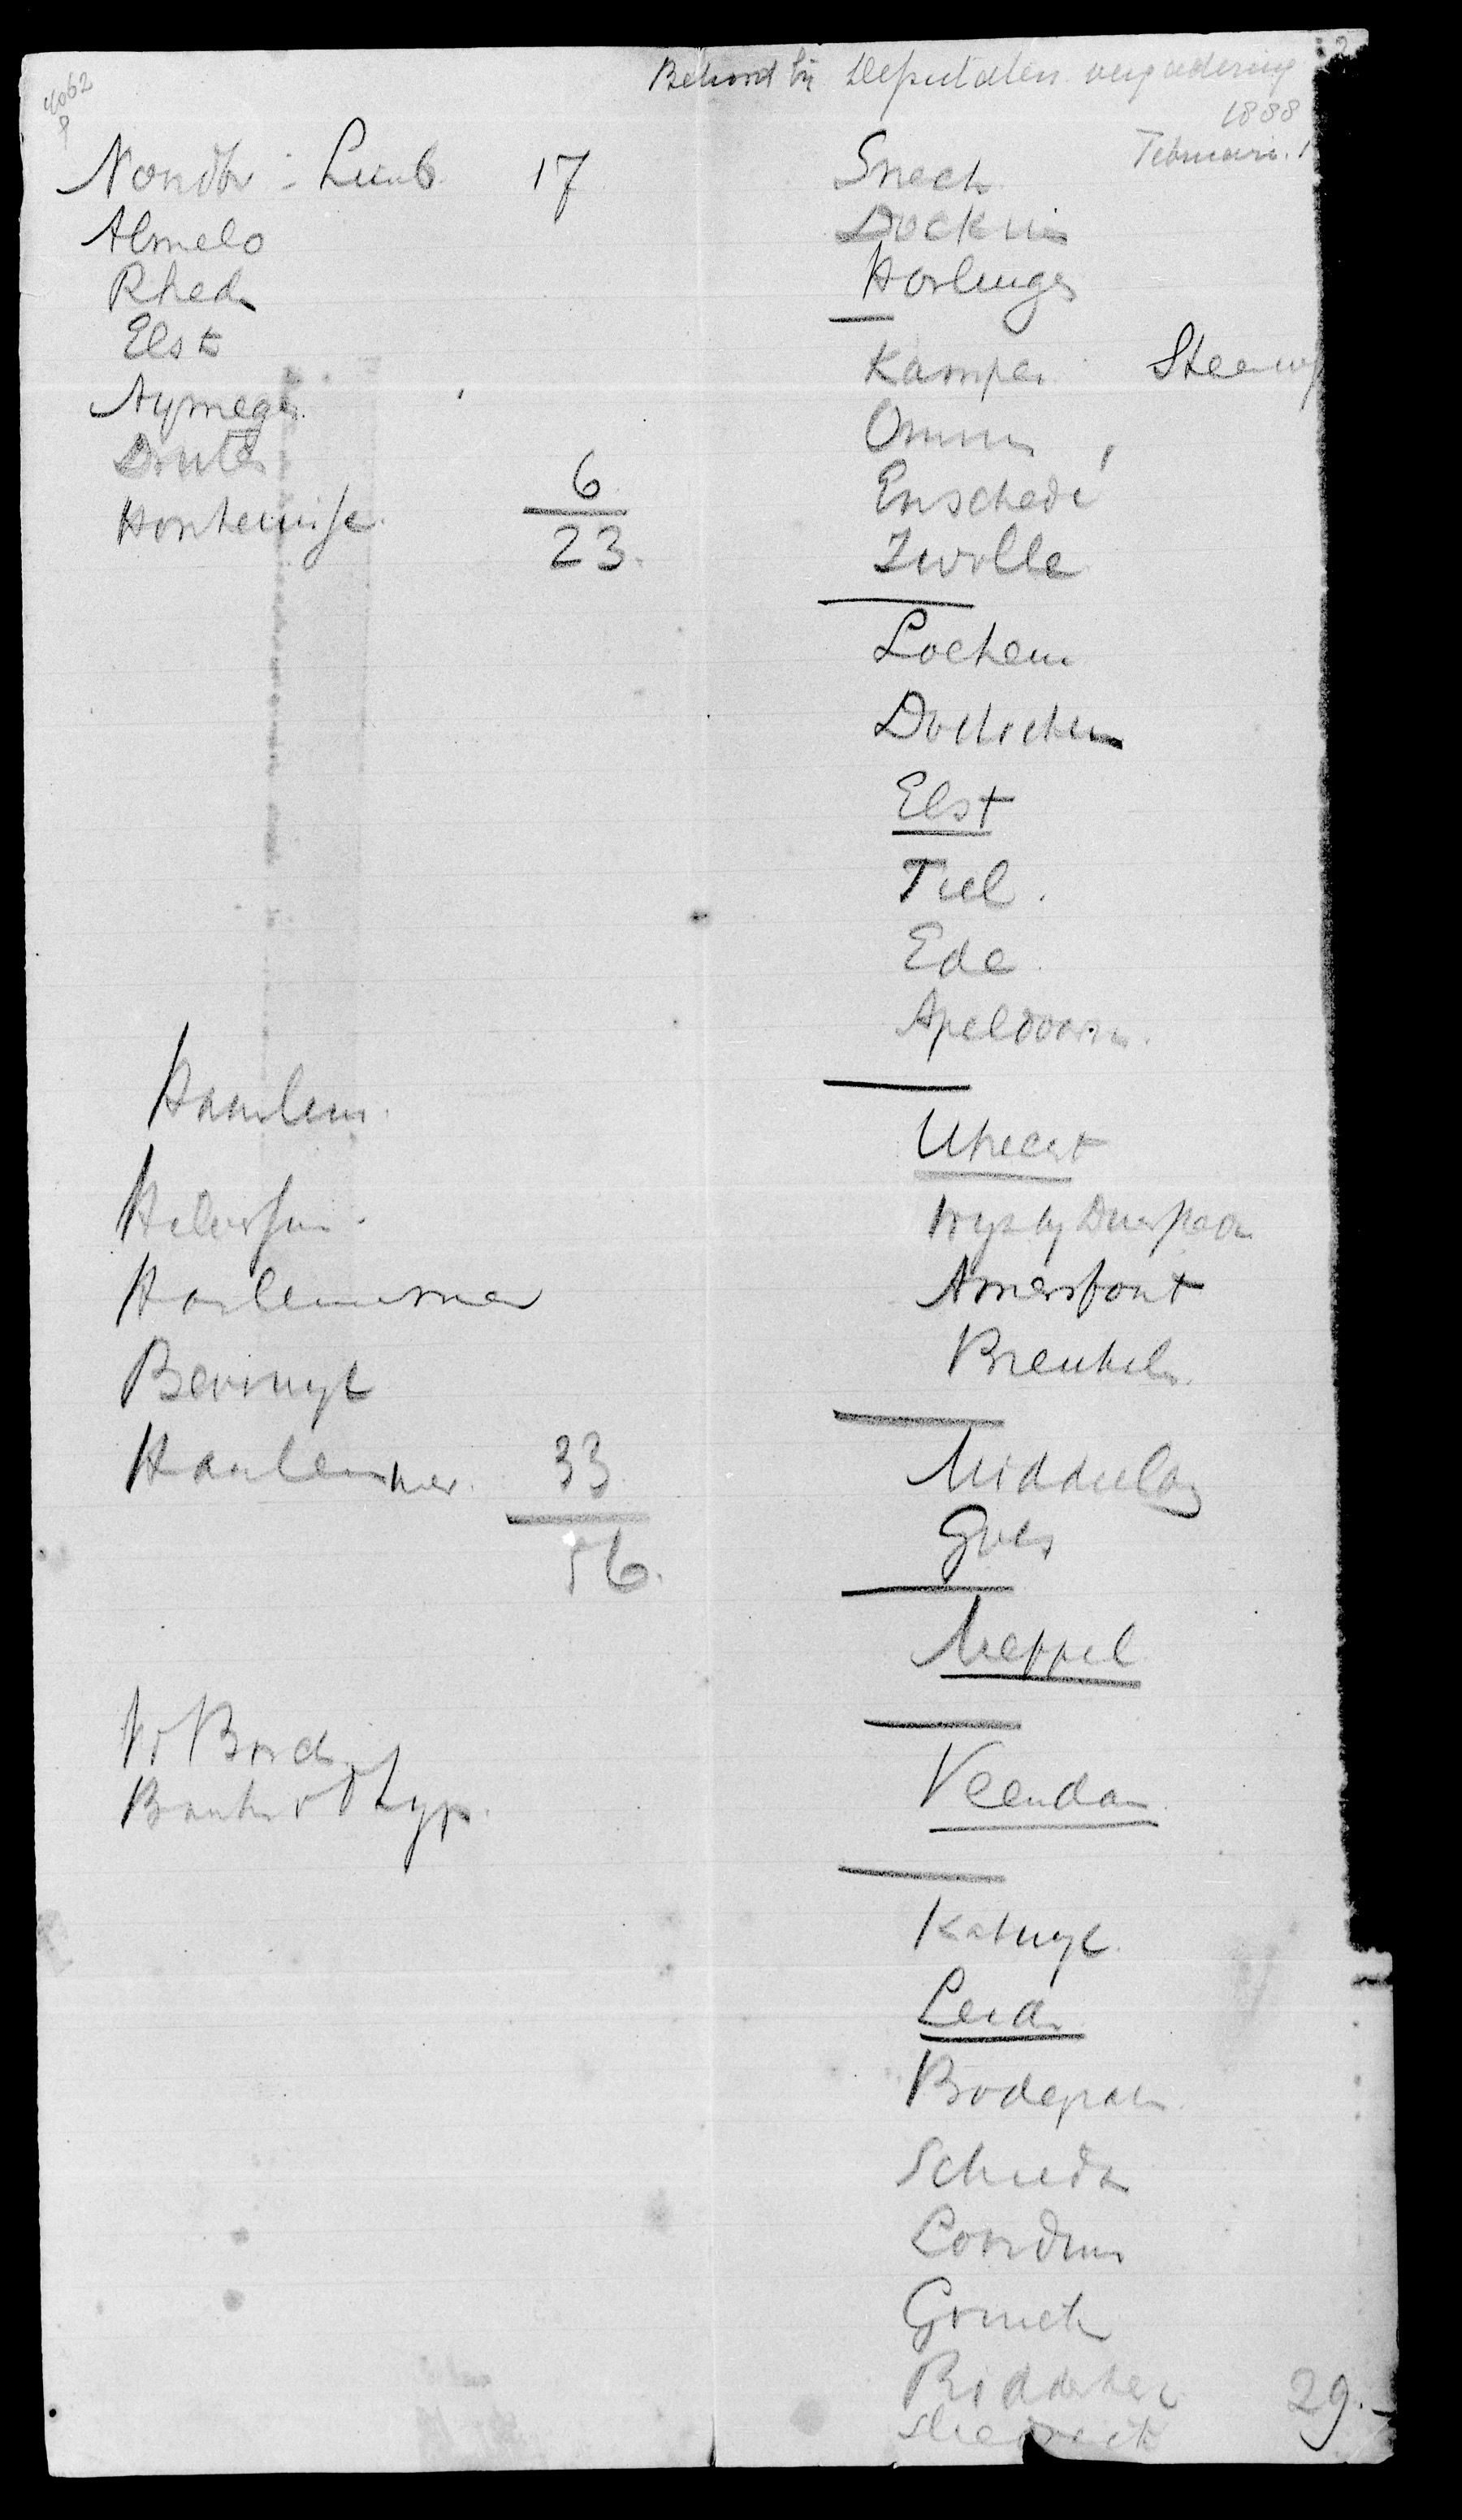 4062
Behoort bij Deputaten vergadering
1888
Februari. 1
Noordbr - Limb. 17
Almelo
Rheden
Elst
Nymegen
Druten
Hontenisse. 6
23.
Haarlem.
Hilversum.
Haarlemmermeer
Beverwyk
Haarlemmer. 33
56.
Sneek
Dockum
Harlingen
Kampen Steenwy
Ommen
Enschedé
Zwolle
Lochem
Doetichem
Elst
Tiel.
Ede.
Apeldoorn.
Utrecht
Wyk by Duurstede
Amersfoort
Breukelen.
Middelbg
Goes
Meppel
Veendam
Katwyk.
Leiden
Bodegraven
Schiedam
Loosduinen
Gorinch
Ridderker
Sliedrecht
29.